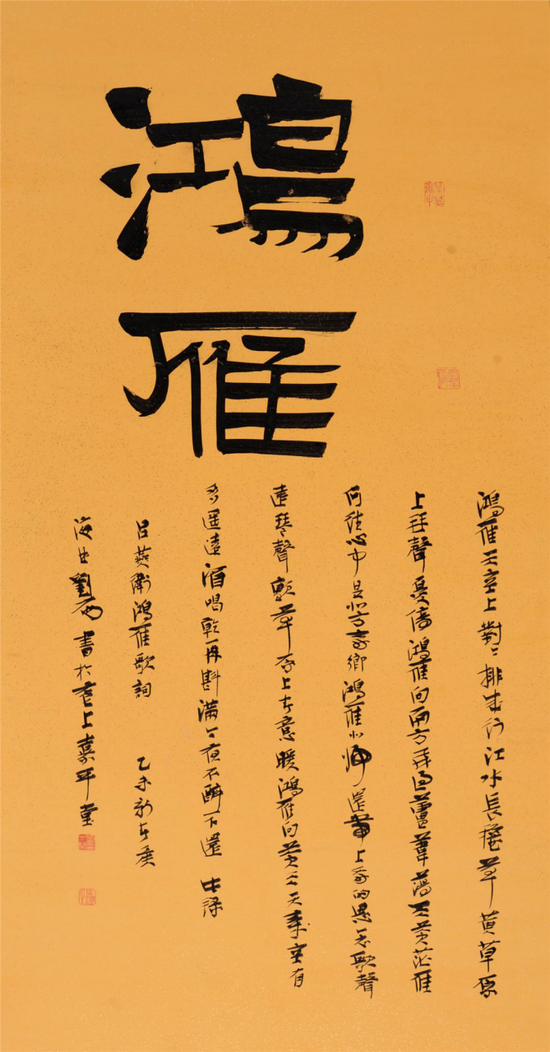 鴻雁
鴻雁天空上對〻排成行江水長秋草黄草原
上琴聲憂傷鴻雁向南方飛過蘆葦蕩天蒼茫雁
何往心中是北方家鄉鴻雁北歸還帶上我的思念歌聲
遠琴聲顫草原上春意暖鴻雁向蒼天天空有
多遥遠酒唱乾再斟滿今夜不醉不還
呂燕衛鴻雁歌詞 乙未
劉石書於上嘉平堂